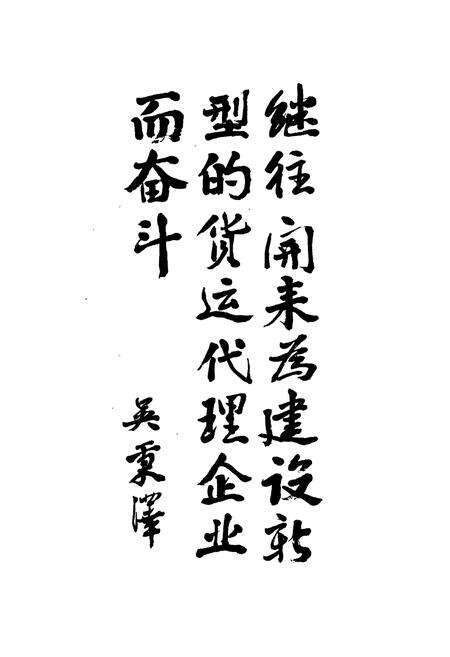 继往開来為建设新
型的货运代理企业
而奋斗
吴秉澤